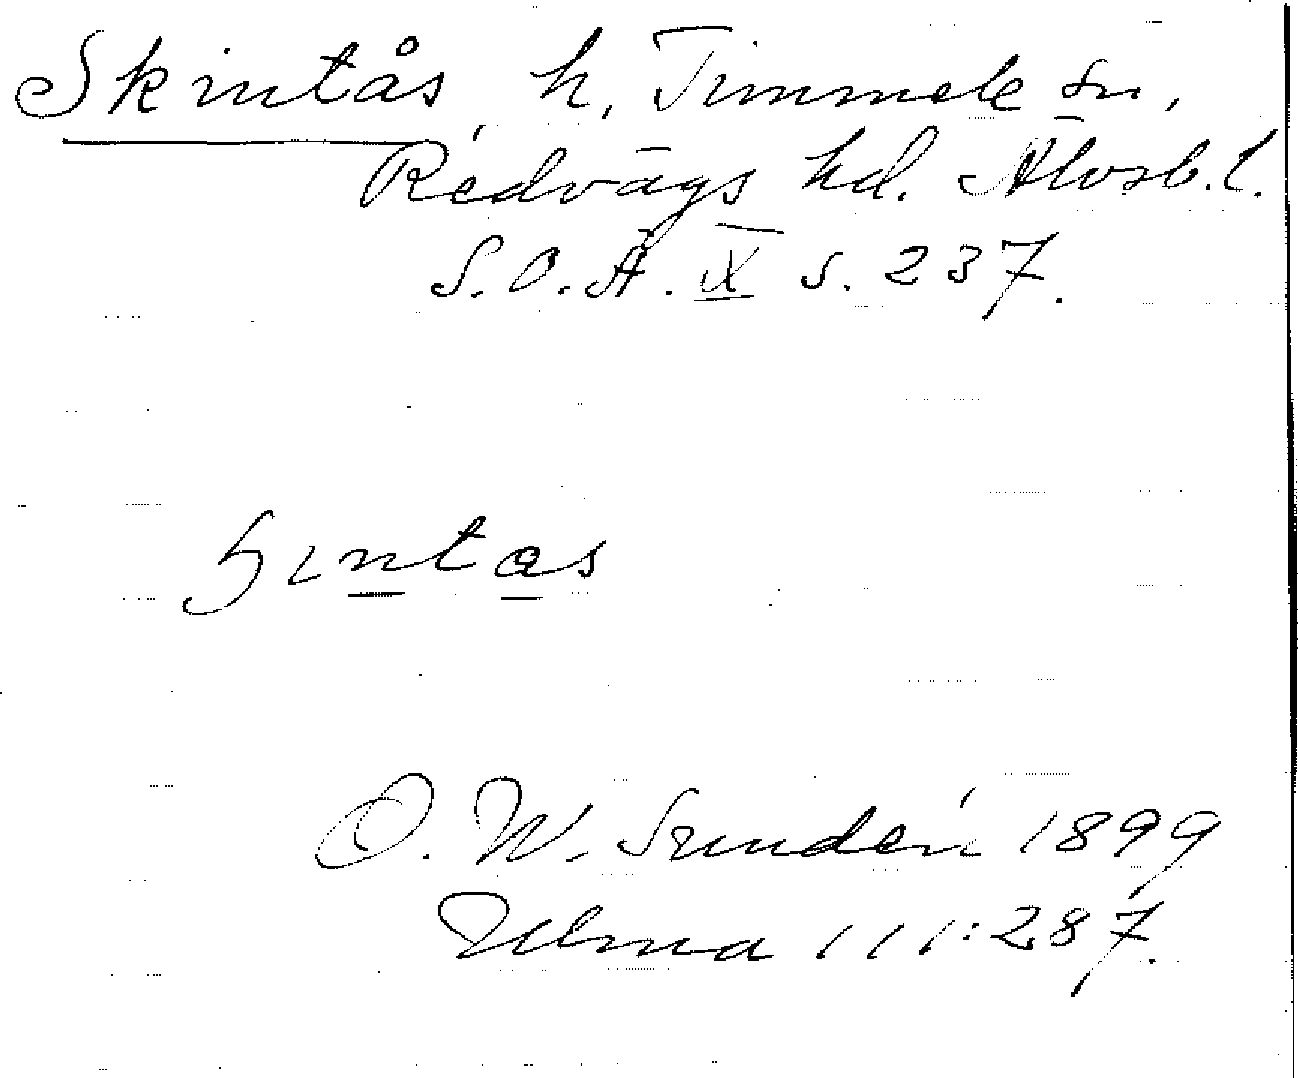 Skintås, h, Timmele sn,
Redvägs hd. Älvsb. l.
S.O.Ä. IX s. 237.
ɧintas
O. W. Sundén 1899
Ulma 111:287.